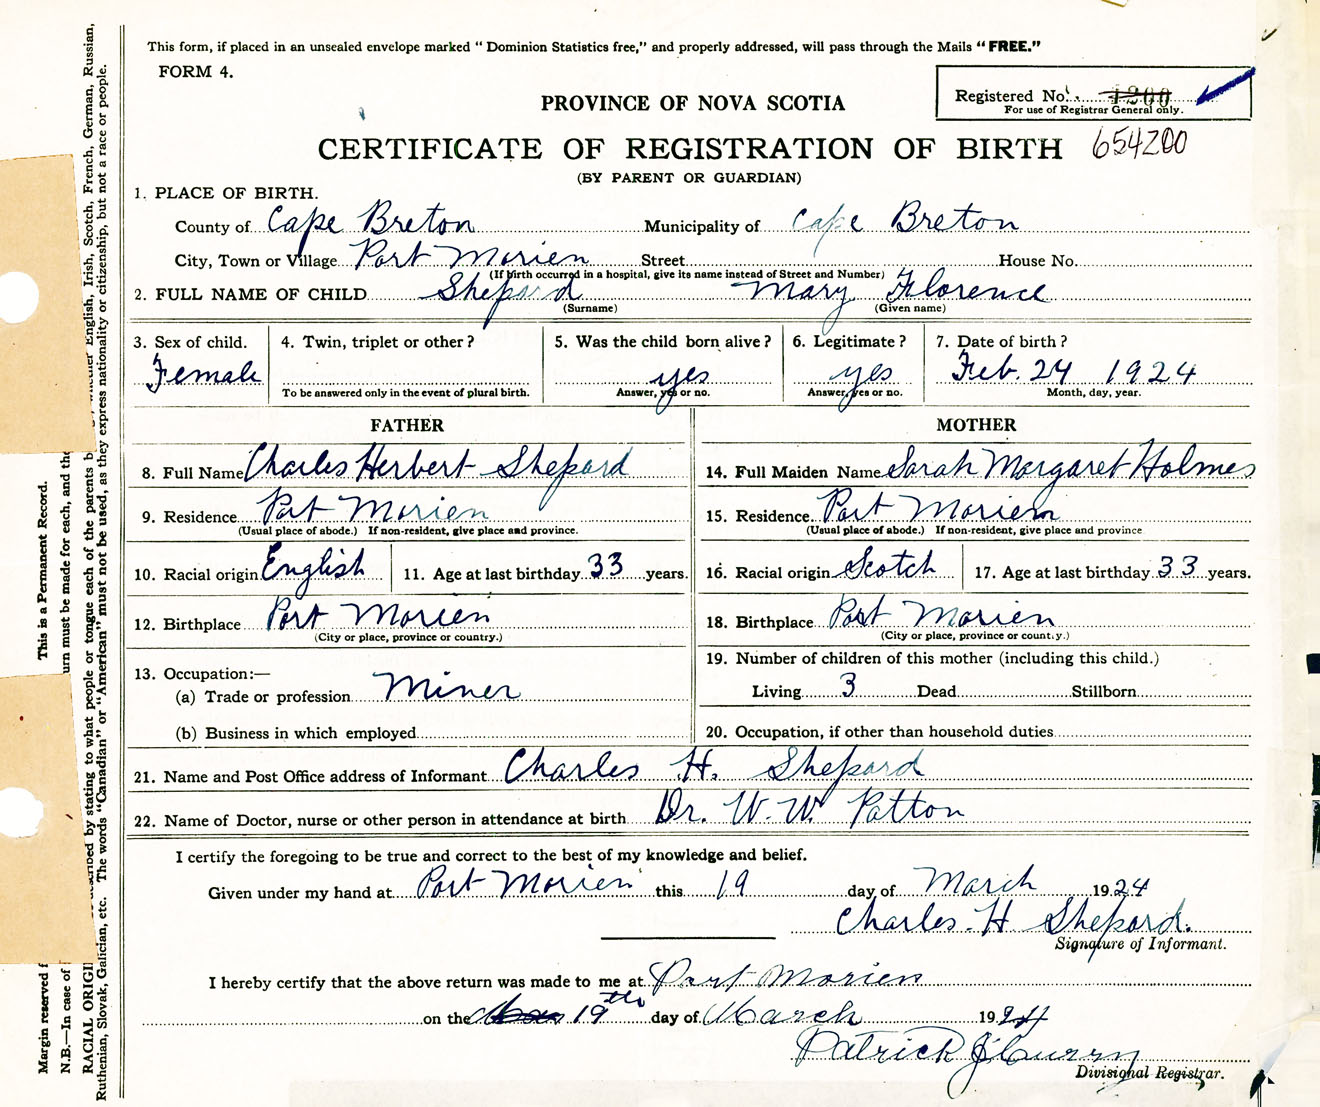 This form, if placed in an unsealed envelope marked "Dominion Statistics free," and properly addressed, will pass through the Mails "FREE."
FORM 4.
Registered No. 1200
For use of Registrar General only.
PROVINCE OF NOVA SCOTIA
CERTIFICATE OF REGISTRATION OF BIRTH 654200
(BY PARENT OR GUARDIAN)
1. PLACE OF BIRTH.
County of Cape Breton Municipality of Cape Breton
City, Town or Village Port Morien Street House No.
(If birth occurred in a hospital, give its name instead of Street and Number)
2. FULL NAME OF CHILD Shepard Mary Florence
(Surname) (Given name)
3. Sex of child. 4. Twin, triplet or other? 5. Was the child born alive? 6. Legitimate? 7. Date of birth?
Female yes yes Feb. 24 1924
To be answered only in the event of plural birth. Answer, yes or no. Answer, yes or no. Month, day, year.
FATHER MOTHER
8. Full Name Charles Herbert Shepard 14. Full Maiden Name Sarah Margaret Holmes
9. Residence Port Morien 15. Residence Port Morien
(Usual place of abode.) If non-resident, give place and province. (Usual place of abode.) If non-resident, give place and province
10. Racial origin English 11. Age at last birthday 33 years. 16. Racial origin Scotch 17. Age at last birthday 33 years.
12. Birthplace Port Morien 18. Birthplace Port Morien
(City or place, province or country.) (City or place, province or country.)
13. Occupation:— 19. Number of children of this mother (including this child.)
(a) Trade or profession Miner Living 3 Dead Stillborn
(b) Business in which employed 20. Occupation, if other than household duties
21. Name and Post Office address of Informant Charles H. Shepard
22. Name of Doctor, nurse or other person in attendance at birth Dr. W. W. Patton
I certify the foregoing to be true and correct to the best of my knowledge and belief.
Given under my hand at Port Morien this 19 day of March 1924
Charles. H Shepard.
Signature of Informant.
I hereby certify that the above return was made to me at Port Morien
on the 19th day of March 1924
Patrick J Curry
Divisional Registrar.
Margin reserved f This is a Permanent Record.
N.B.—In case of urn must be made for each, and the
RACIAL ORIGI described by stating to what people or tongue each of the parents b whether English, Irish, Scotch, French, German, Russian,
Ruthenian, Slovak, Galician, etc. The words "Canadian" or "American" must not be used, as they express nationality or citizenship, but not a race or people.